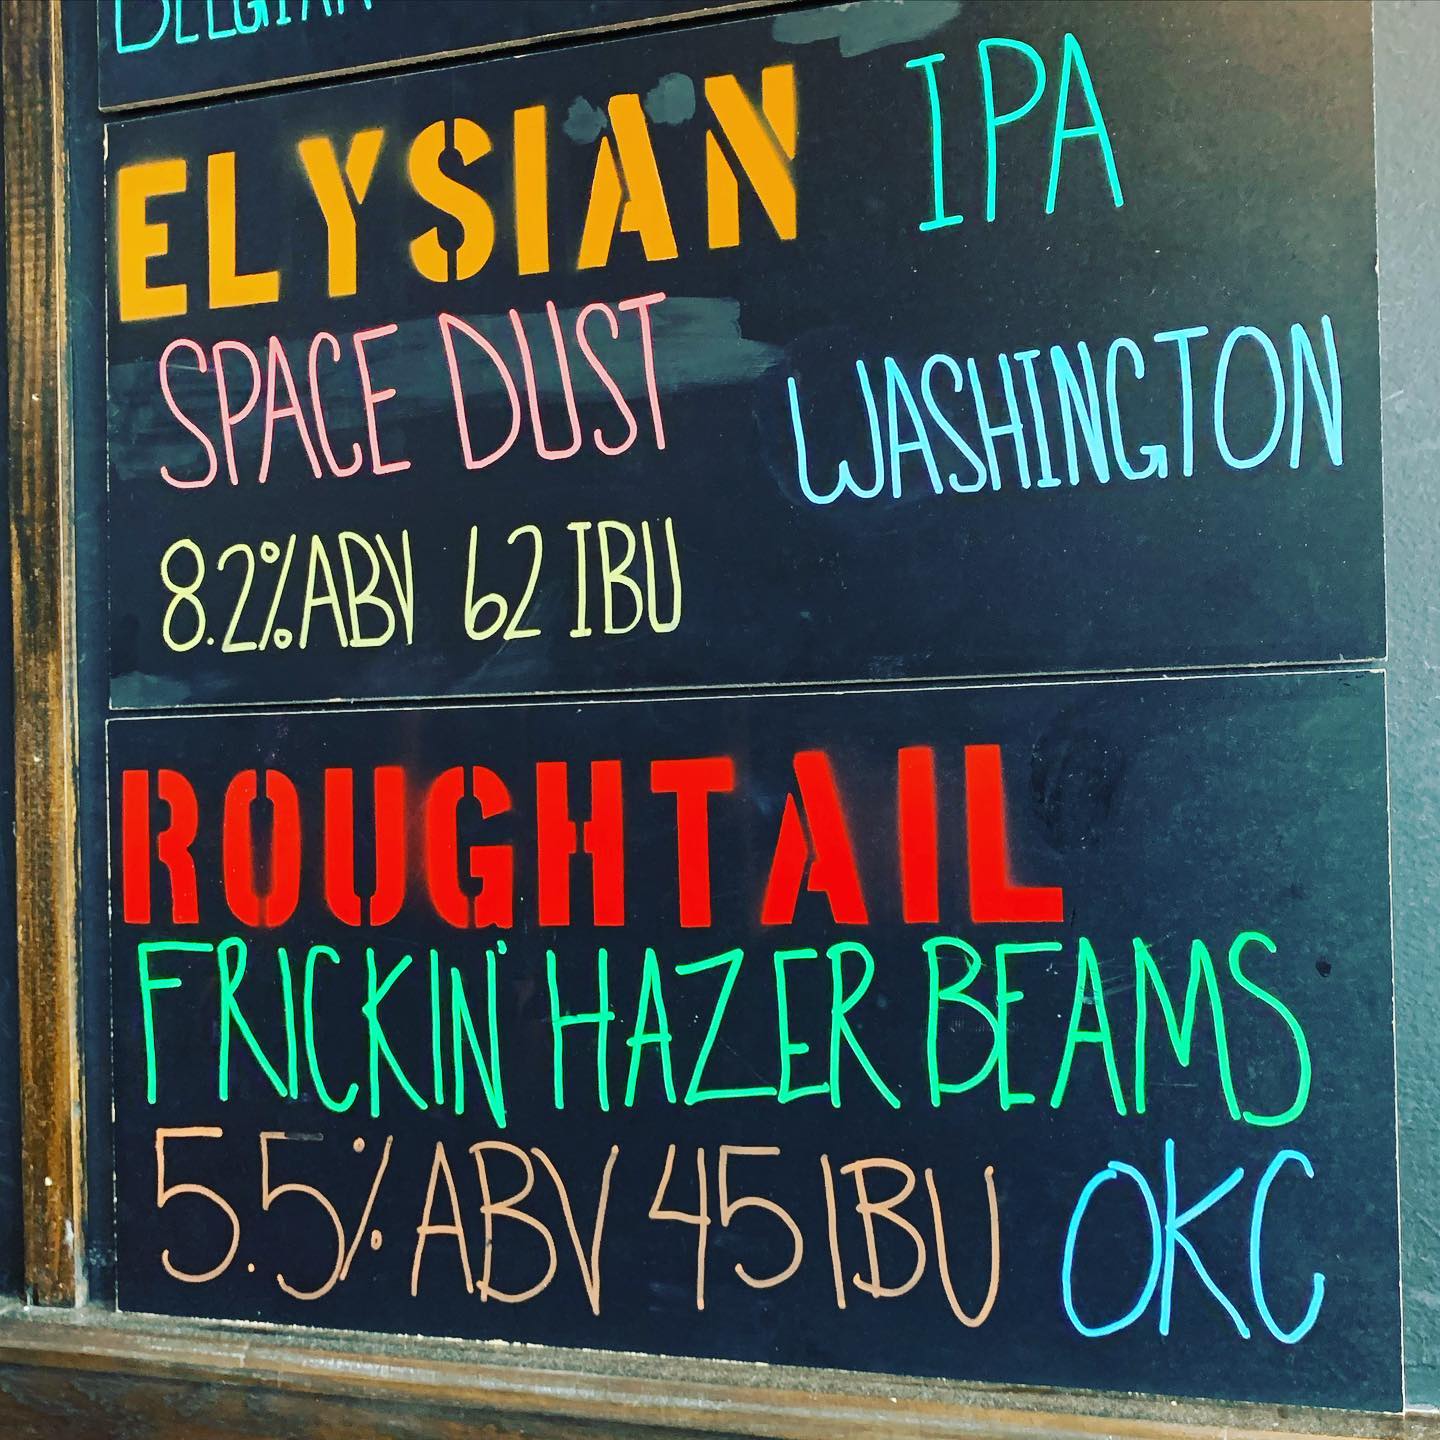 BELGIAN
ELYSIAN IPA
SPACE DUST WASHINGTON
8.2% ABV 62 IBU
ROUGHTAIL
FRICKIN' HAZER BEAMS
5.5% ABV 45 IBU OKC